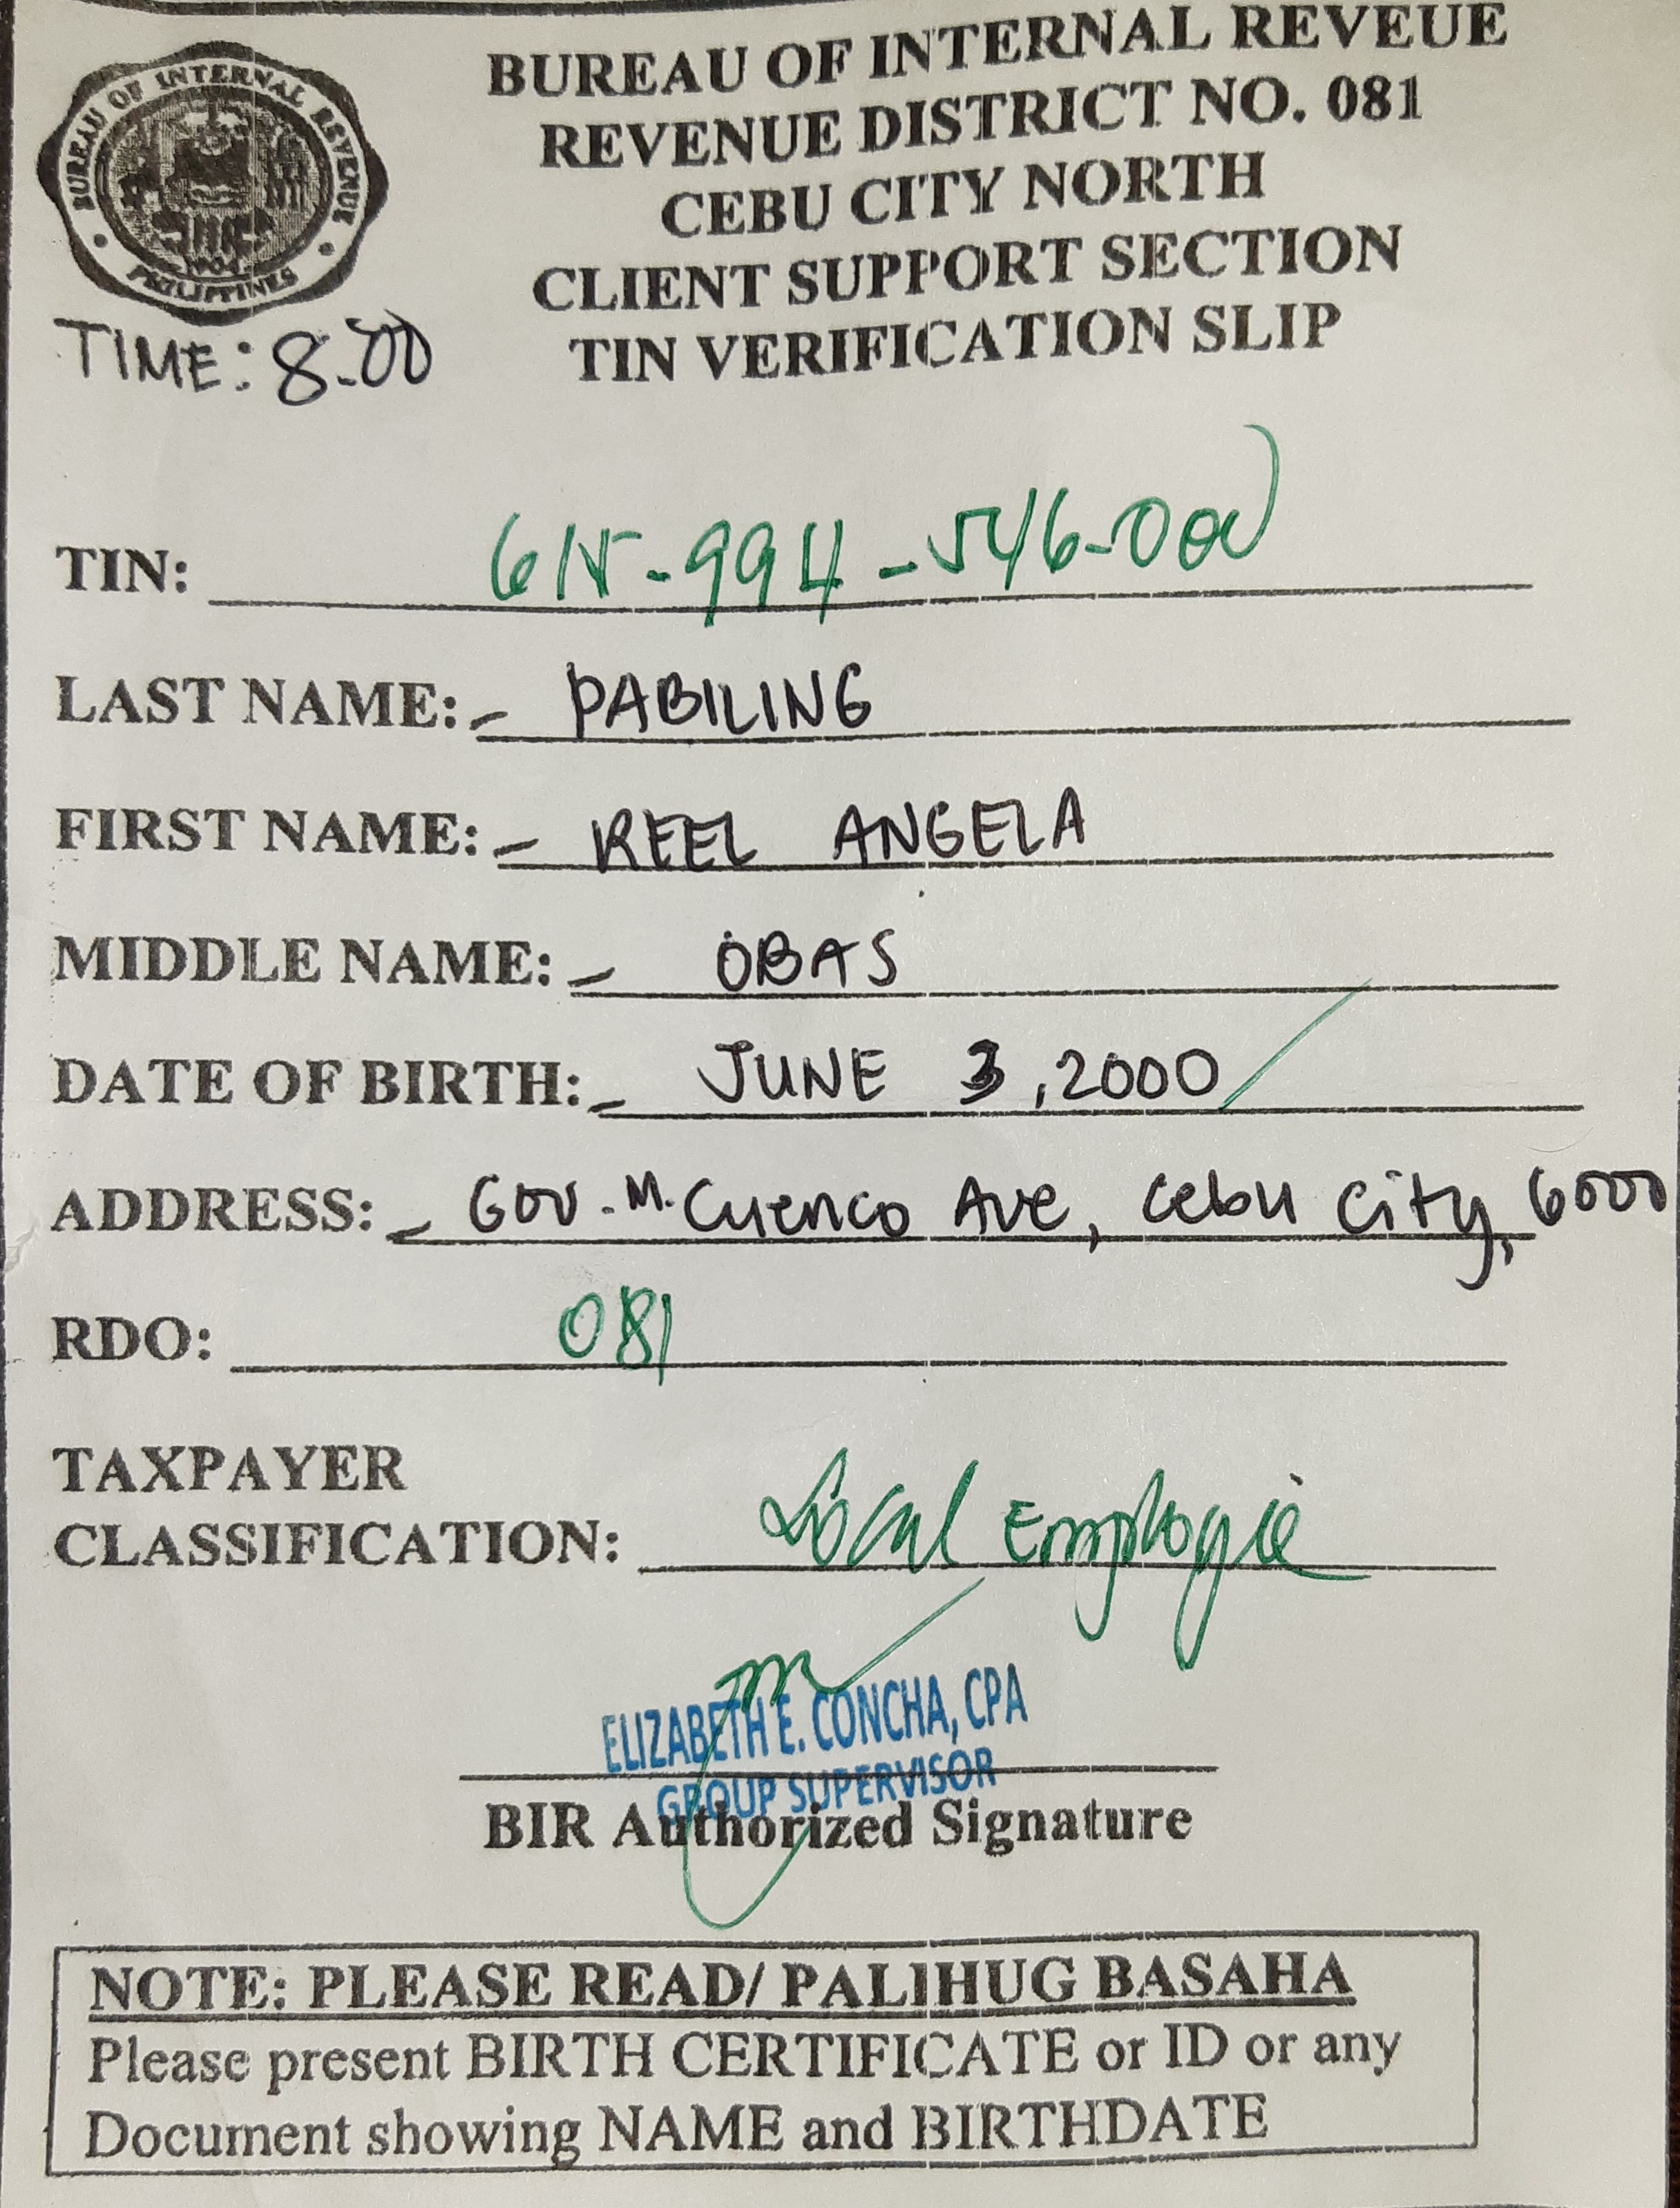 BUREAU OF INTERNAL REVENUE
PHILIPPINES
1904
BUREAU OF INTERNAL REVEUE
REVENUE DISTRICT NO. 081
CEBU CITY NORTH
CLIENT SUPPORT SECTION
TIN VERIFICATION SLIP
TIME: 8:00
TIN: 615-994-546-000
LAST NAME: - PABILING
FIRST NAME: - REEL ANGELA
MIDDLE NAME: - OBAS
DATE OF BIRTH: - JUNE 3, 2000
ADDRESS: - Gov. M. Cuenco Ave, Cebu City, 6000
RDO: 081
TAXPAYER
CLASSIFICATION: Local Employee
ELIZABETH E. CONCHA, CPA
GROUP SUPERVISOR
BIR Authorized Signature
NOTE: PLEASE READ/ PALIHUG BASAHA
Please present BIRTH CERTIFICATE or ID or any
Document showing NAME and BIRTHDATE